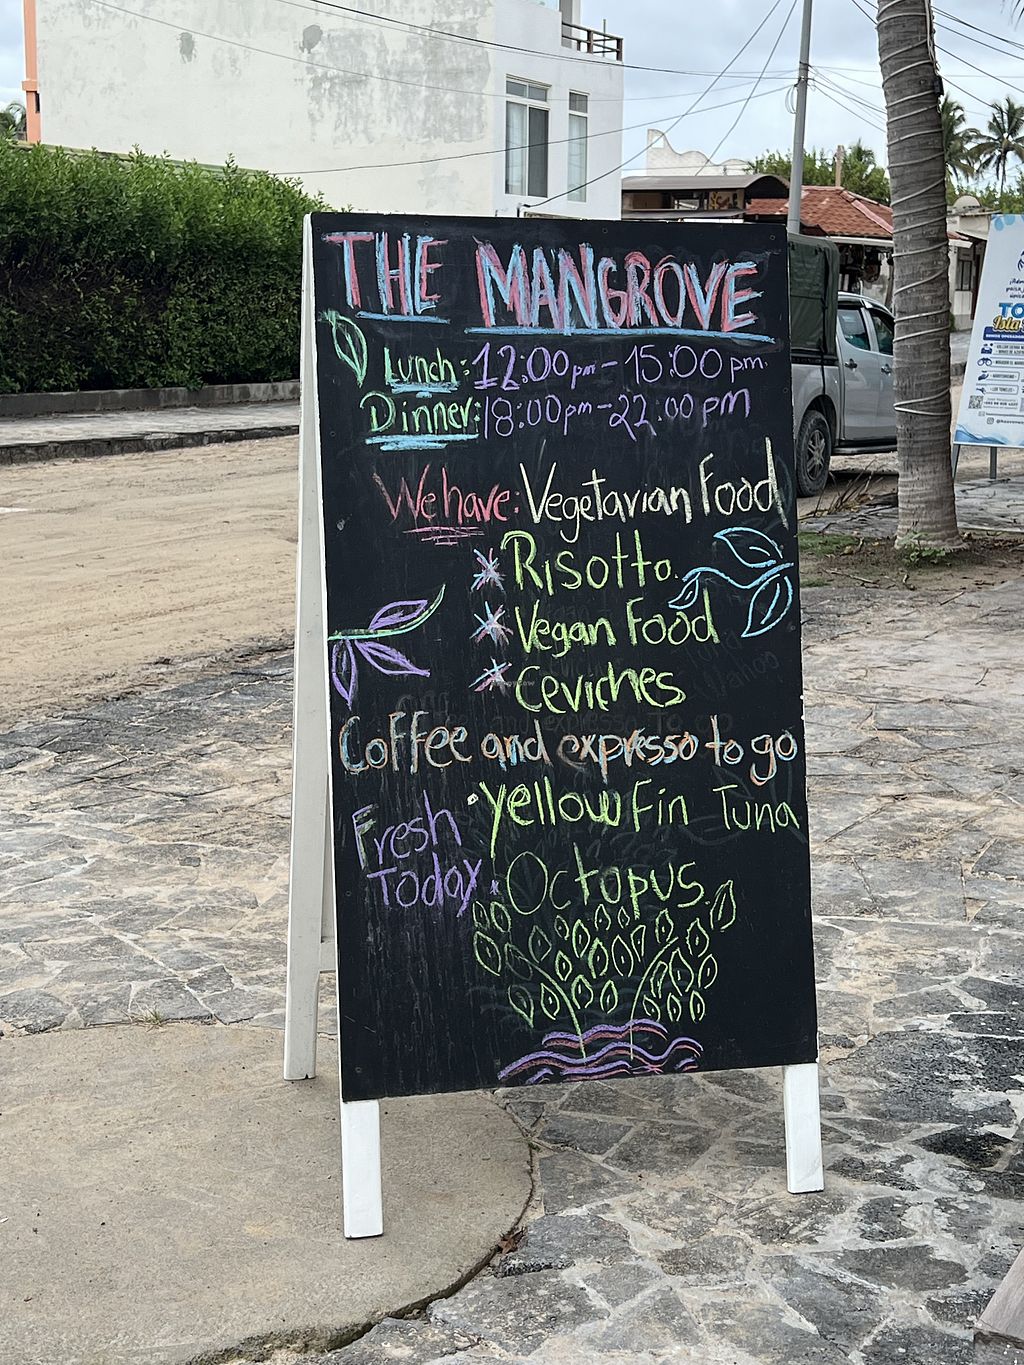 THE MANGROVE
Lunch: 12:00 pm - 15:00 pm.
Dinner: 18:00 pm - 22:00 pm
We have: Vegetavian Food
* Risotto.
* Vegan Food
* Ceviches
Coffee and expresso to go
Fresh Today
· Yellow Fin Tuna
· Octopus.
TO
Isla